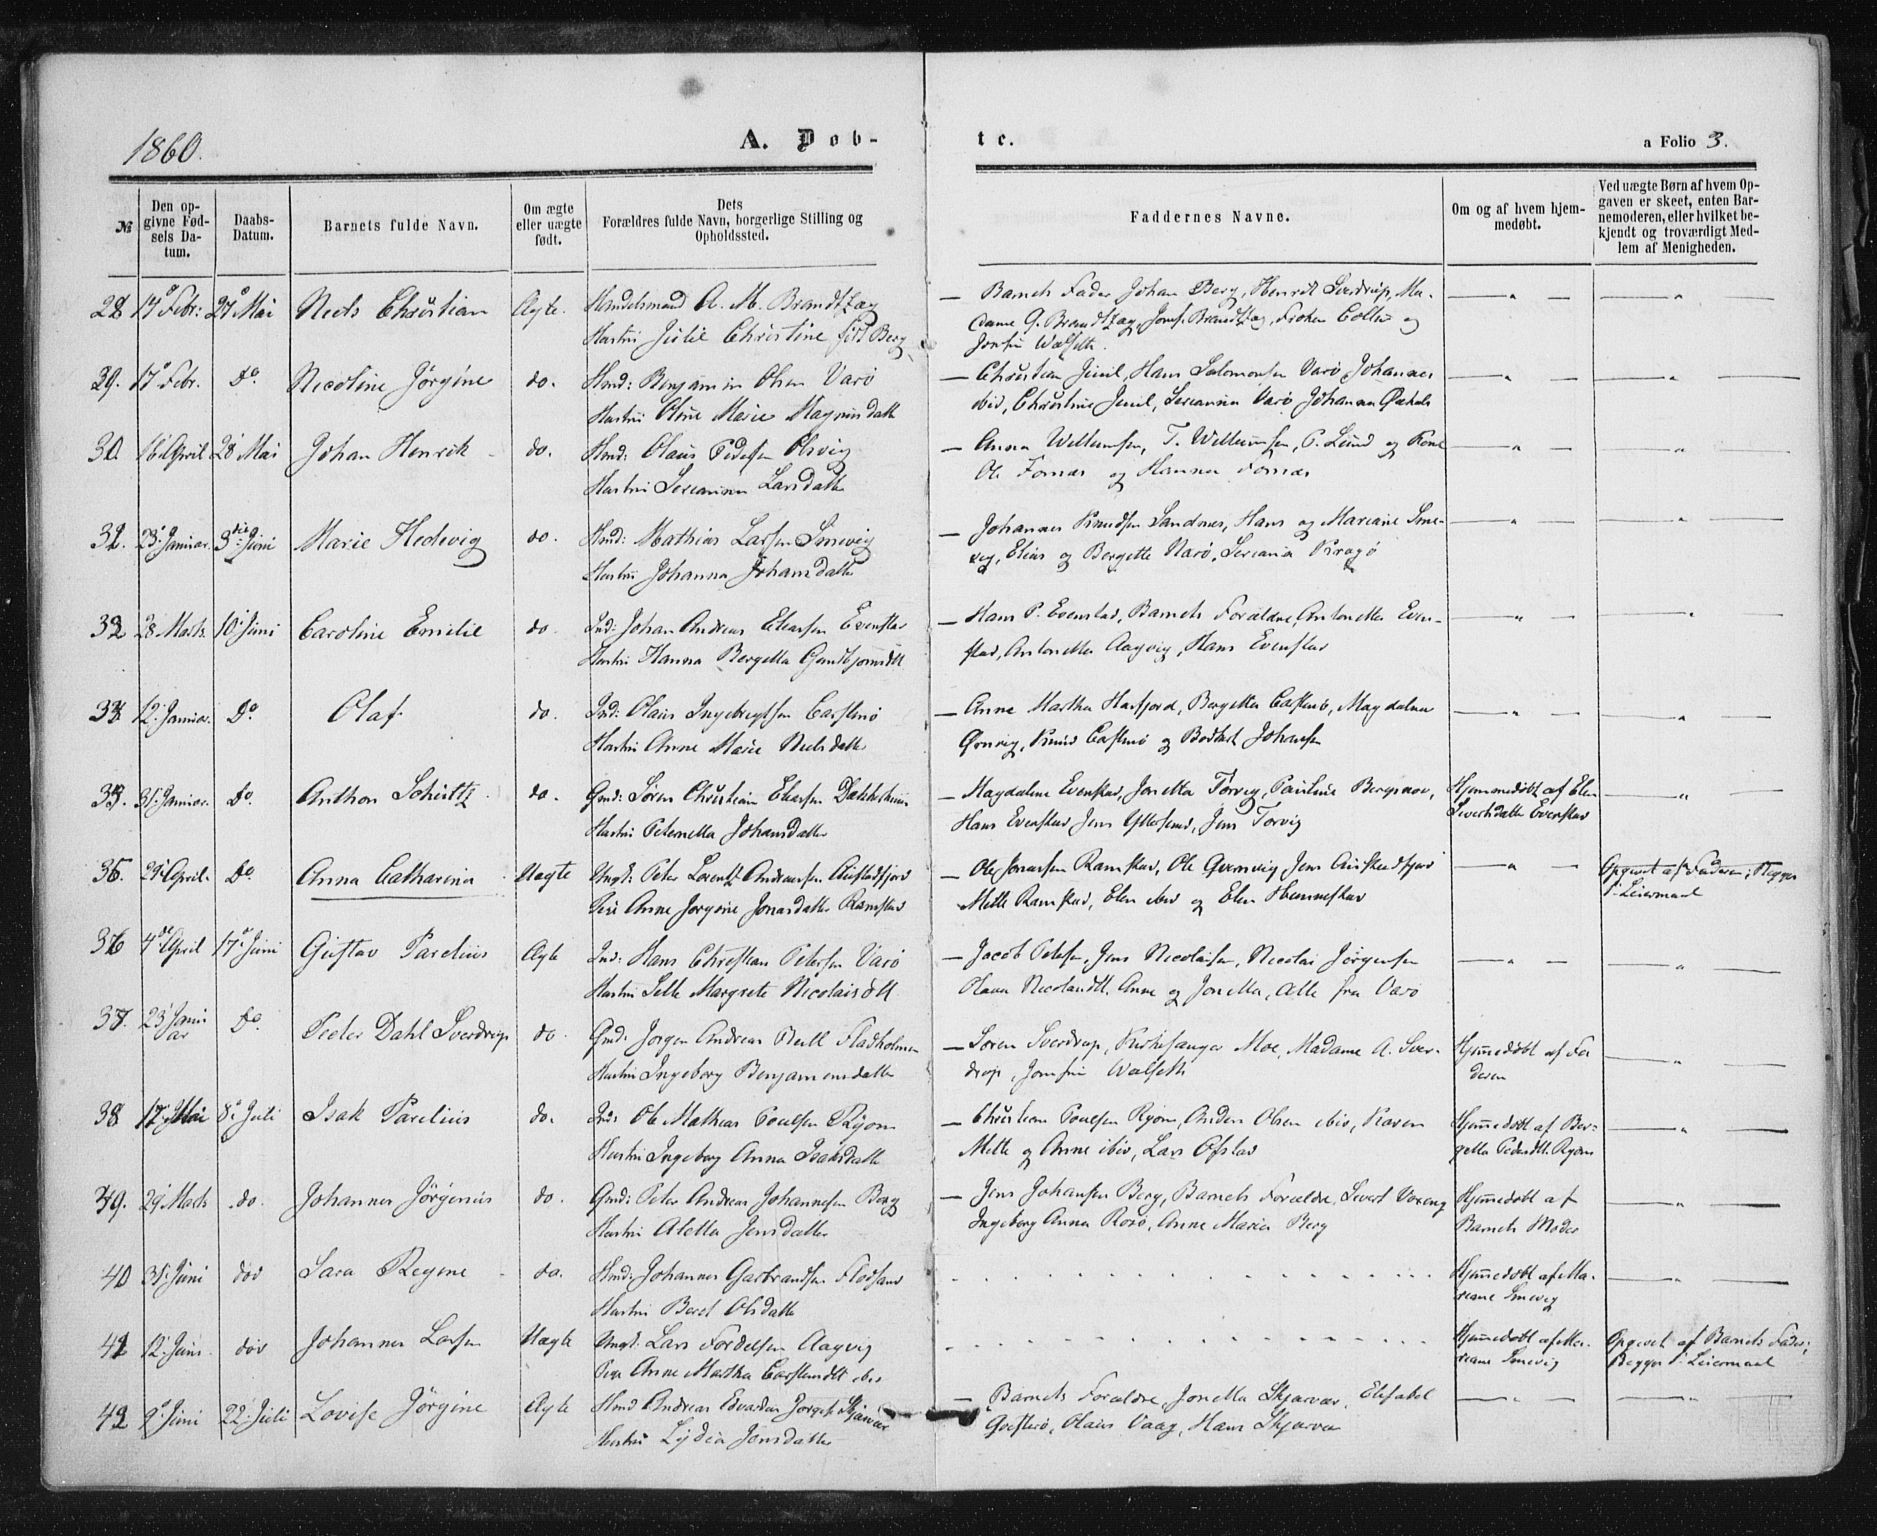 1860.
A. Døb-
te.
a Folio 3.
№
Den op-
givne Fød-
sels Da-
tum.
Daabs-
Datum.
Barnets fulde Navn.
Om ægte
eller uægte
født.
Dets
Forældres fulde Navn, borgerlige Stilling og
Opholdssted.
Faddernes Navne.
Om og af hvem hjem-
medøbt.
Ved uægte Børn af hvem Op-
gaven er skeet, enten Bar-
nemoderen, eller hvilket be-
kjendt og troværdigt Med-
lem af Menigheden.
28 17 Febr: 27 Mai Niels Christian Ægte. Handelsmand A. M. Brandtzæg
Hustru Julie Christine født Berg
— Barnets Fader Johan Berg, Henrik Sverdrup, Ma-
dame G. Brandtzæg, Jomf. Brandtzæg, Frøken Collin og
Jomfru Walseth.
29. 17 Febr. Do Nicoline Jørgine do. Hmd: Benjamin Olsen Varø
Hustru Oline Marie Magnusdatter
— Christian Juul, Hans Salomonsen Varø Johannes
ibid, Christine Juul, Varø Johanna
30. 16 April 28 Mai Johan Henrik do. Hmd: Olaus Pedersen Olsvig
Hustru Larsdatter
— Anna Willumsen, T. Willumsen, P. Lund og Kone
Ole Fornæs og Hanna Fornæs
31. 23 Januar. 3die Juni Marie Hedevig do. Hmd: Mathias Larsen Smevig
Hustru Johanna Johansdatter
— Johannes Knudsen Sandnes, Hans og Mariane Sme-
vig, Elias og Bergette Varø, Kragø
32 28 Marts. 10 Juni Caroline Emilie do Ind: Johan Andreas Eliassen Evenstad
Hustru Hanna Bergetta
— Hans P. Evenstad, Barnets Forældre, Antonetta Even-
stad, Antonetta Aagvig, Hans Evenstad
33. 12 Januar. Do. Olaf do. Ind: Olaus Ingebregtsen Carstenø
Hustru Anne Marie Nielsdatter
— Anne Martha Horsfjord, Bergetta Carstenø, Magdalena
Knud Carstenø og Johansen
34. 31 Januar. Do. Anthon Schultz do. Gmd: Søren Christian Eliassen
Hustru Peternella Johansdatter
— Magdalene Evenstad, Jonetta Torvig, Pauline Bergsnov,
Hans Evenstad Jens Jens Torvig
Hjemmedøbt af Elen
Sivertsdatter Evenstad
35. 29 April. Do Anna Catharina Uægte Ungk: Peter Lorentz Andreassen Austadfjord
Pige Anne Jørgine Jonasdatter Ramstad
— Ole Jonassen Ramstad, Ole Jens
Mette Ramstad, Elen ibid og Elen Hemmestad
Opgivet af Faderen; Begges
1. Leiermaal
36 4de April 17 Juni Gustav Parelius Ægte Ind: Hans Christian Petersen Varø
Hustru Margrete Nicolaisdtt.
— Jacob Petersen, Jens Nicolaisen, Nicolai Jørgensen
Olava Anne og Jonetta, alle fra Varø
37. 23 Janu
ar Do. Peder Dahl Sverdrup do. Gmd: Jørgen Andreas Bull Fladholmen
Hustru Ingeborg Benjaminsdatter
— Søren Sverdrup, Kirkesanger Moe, Madame A. Sver-
drup, Jomfru Walseth
Hjemmedøbt af Fa
deren
38 17 Mai 8 Juli Isak Parelius do. Ind: Ole Mathias Poulsen Ryom
Hustru Ingeborg Anna Isaksdatter
— Christian Poulsen Ryom, Anders Olsen ibid, Karen
Mette og Anne ibid, Lars Ofstad
Hjemmedøbt af Ber-
getta Pedersdtt. Ryom
39. 29 Marts do. Johannes Jørgenius do. Gmd: Peter Andreas Johannesen Berg
Hustru Aletta Jensdatter
— Jens Johansen Berg, Barnets Forældre, Sivert
Ingeborg Anna Rosø, Anne Marie Berg
Hjemmedøbt af
Barnets Moder
40 31 Juni død Sara Regine do. Hmd: Johannes Garbrandsen Flodsand
Hustru Beret Olsdatter
Hjemmedøbt af Ma-
riane Smevig
41 12 Juni død Johannes Larsen Uægte Ungk: Lars Aagvig
Pige Anne Martha ibid
Hjemmedøbt af Ma-
riane Smevig
Opgivet af Barnets Fader;
Begges 1. Leiermaal
42 9 Juni 22 Juli Lovise Jørgine Ægte Hmd Andreas Edvardus Skjærvær
Hustru Lydia Jonsdatter
— Barnets Forældre, Jonetta Skjærvær, Elisabet
Olaus Vaag, Hans Skjærvær